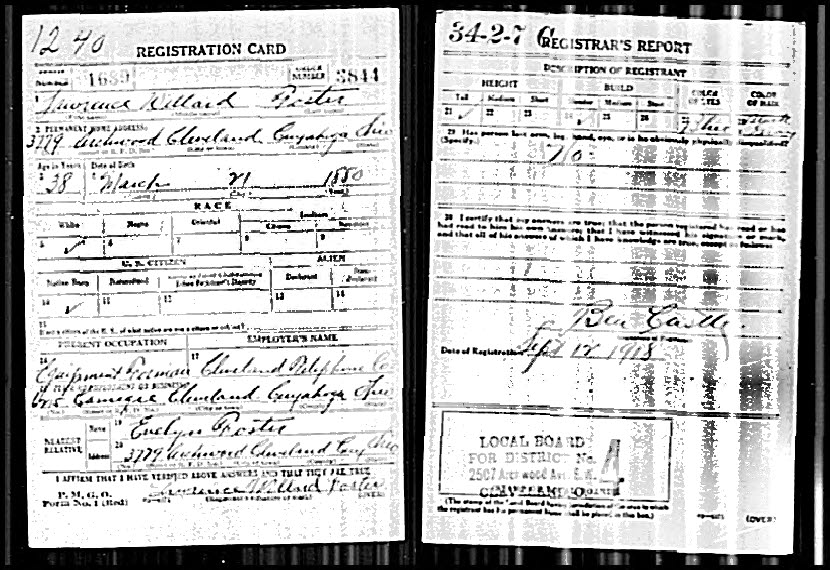 12 40
REGISTRATION CARD
SERIAL NUMBER 1689 ORDER NUMBER 3844
1 Lawrence Willard Foster
2 PERMANENT HOME ADDRESS:
3779 Archwood Cleveland Cuyahoga Ohio
Age in Years Date of Birth
38 March 21 1880
RACE
White Negro Oriental Indian
Citizen
5 ✓ 6 7 8 9
U. S. CITIZEN ALIEN
Native Born Naturalized Declarant Non-Declarant
10 ✓ 11 12 13 14
15
PRESENT OCCUPATION EMPLOYER'S NAME
16 Equipment Foreman 17 Cleveland Telephone Co
Cleveland Cuyahoga Ohio
NEAREST RELATIVE Name 19 Evelyn Foster
Address 20 3779 Archwood Cleveland Cuy Ohio
I AFFIRM THAT I HAVE VERIFIED ABOVE ANSWERS AND THAT THEY ARE TRUE
P. M. G. O.
Form No. 1 (Red) Lawrence Willard Foster (OVER)
34-2-7 C
REGISTRAR'S REPORT
DESCRIPTION OF REGISTRANT
HEIGHT BUILD COLOR OF EYES COLOR OF HAIR
Tall Medium Short Slender Medium Stout
21 ✓ 22 23 24 ✓ 25 26 27 Blue
29 Has person lost arm, leg, hand, eye, or is he obviously physically disqualified?
(Specify.)
No
30 I certify that my answers are true; that the person registered has read or has
had read to him his own answers; that I have witnessed his signature or mark,
and that all of his answers of which I have knowledge are true, except as follows:
Ben
Date of Registration Sept 12 1918
LOCAL BOARD
FOR DISTRICT No. 4
2507 Archwood Ave. S.W.
CLEVELAND, OHIO
(The stamp of the Local Board having jurisdiction of the area in which
the registrant has his permanent home shall be placed in this box.)
(OVER)